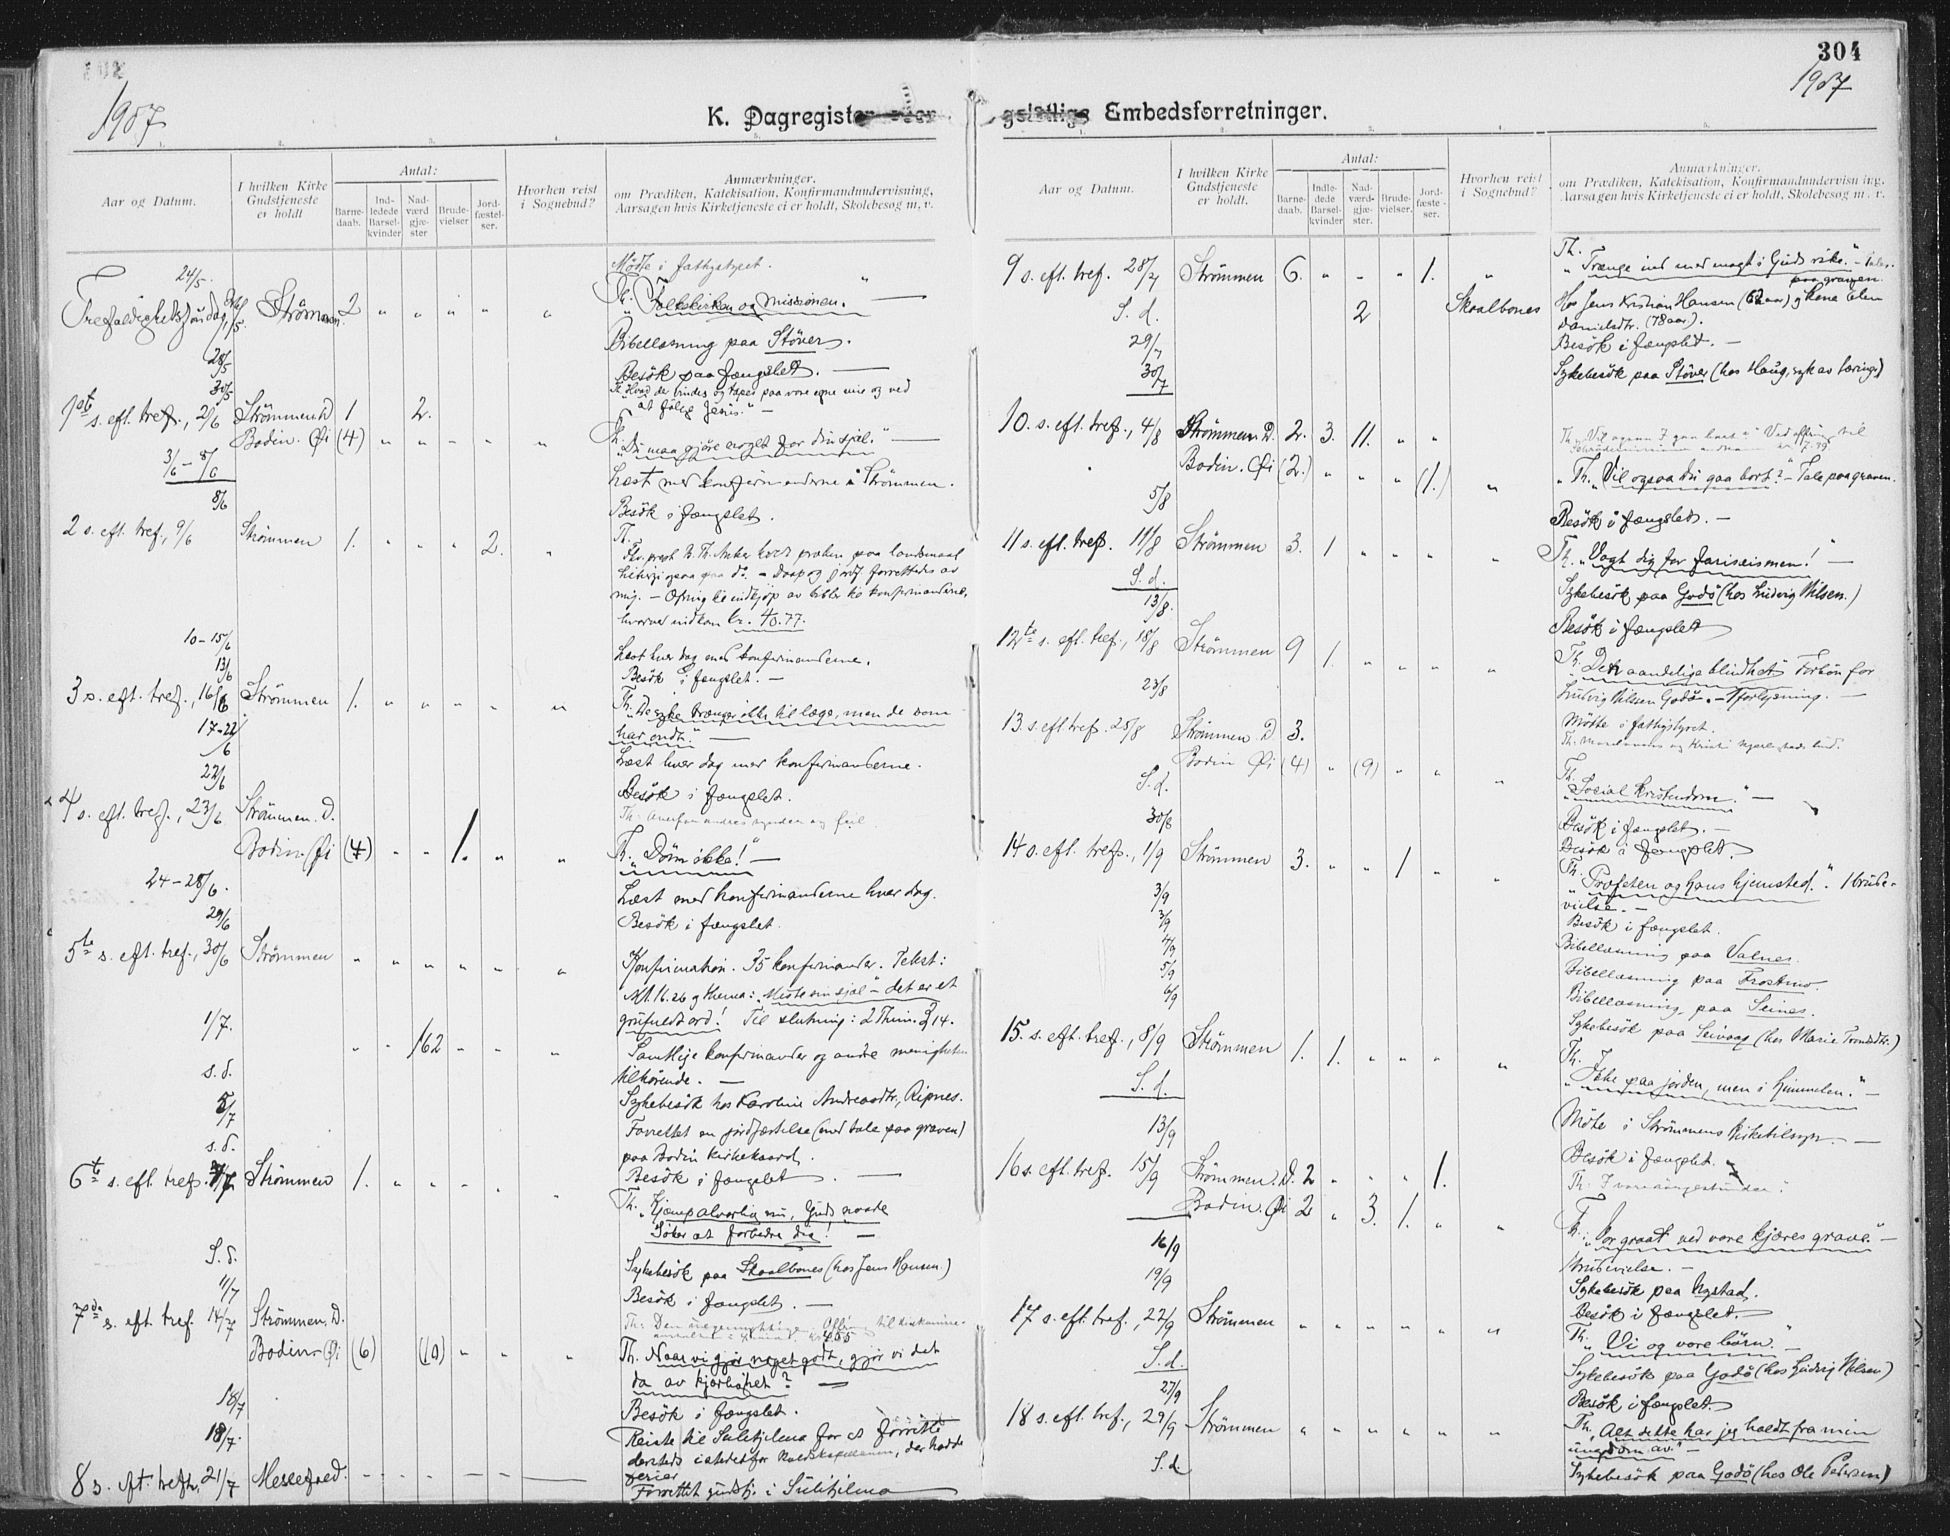 304
1907
1907
K. Dagregister over
geistlige Embedsforretninger.
1. 2. 3. 4. 5.
Aar og Datum.
I hvilken Kirke Gudstjeneste er holdt
Antal:
Barne-daab.
Ind-ledede Barsel-kvinder
Nad-værd gjæ-ster
Brude-vielser
Jord-fæstel-ser.
Hvorhen reist i Sognebud?
Anmærkninger.
om Prædiken, Katekisation, Konfirmandundervisning,
Aarsagen hvis Kirketjeneste ei er holdt, Skolebesøg m, v.
24/5. Møtte i fattigstyret.
Trefoldighetssöndag, Strömmen 2 " " " " " Th. "Folkekirken og missionen."
Bibellæsning paa Støver.
28/5 Besök paa fængslet.
30/5 Th. Hvad der vindes og tapes paa vore egne veie og ved
at følge Jesus." -
1ste s. eft. tref., 2/6 Strömmen D 1 2.
Bodin. Øi (4) " " " " " Th. "Du maa gjöre noget for din sjæl."
3/6 - 8/6 Læst med konfirmanderne i Strömmen.
8/6 Besök i fængslet.
2 s. eft. tref., 9/6 Strömmen 1. " " " 2. " Th.
holdt præken paa landsmaal
Liturgi ogsaa paa do. - Daap og jordf. forrettedes av
mig. - Ofring til indkjöp av bibler til konfirmanderne,
hvorved indkom kr. 40.77.
10 - 15/6 Læst hver dag med konfirmanderne.
13/6 Besök i fængslet. -
3 s. eft. tref., 16/6 Strömmen 1. " " " " " Th. "De syke trænger ikke til læge, men de som
har ondt." -
17-22/6 Læst hver dag med konfirmanderne.
22/6 Besök i fængslet.
4 s. eft. tref., 23/6 Strömmen. D. Th: andres synder og feil
Bodin. Øi (4) " " 1. " " Th. "Döm ikke!" -
24 - 28/6. Læst med konfirmanderne hver dag.
29/6 Besök i fængslet.
5te s. eft. tref., 30/6 Strömmen " " " " " " Konfirmation. 35 konfirmander. Tekst:
Mt. 16.26 og thema: "Miste sin sjæl" - det er et
grufuldt ord! Til slutning: 2 Thim. 3.14.
1/7. " " 162 " " " Samtlige konfirmander og andre menigheten
tilhörende. -
s. d. Sykebesök hos Karoline Andreasdtr., Ripnes.
5/7 Forrettet en jordfæstelse (med tale paa graven)
paa Bodin kirkegaard.
s. d. Besök i fængslet.
6te s. eft. tref. 7/7 Strömmen 1. " " " " " Th. "Kjæmp alvorlig nu, Guds naade
Söker at forbedre dig!" -
S. d. Sykebesök paa Skaalbones (hos Jens Hansen)
11/7 Besök i fængslet. -
7de s. eft. tref. 14/7 Strömmen. D. Th: Den
Bodin. Øi (6) (10) " " " Th. Naar vi gjör noget godt, gjör vi det
da av kjærlighet? -
18/7 Besök i fængslet.
18/7. Reiste til Sulitjelma for at forrette
dersteds istedetfor der hadde
ferier
8 s. eft. tref., 21/7 Messefald. Forrettet gudstj. i Sulitjelma
1. 2. 3. 4. 5.
Aar og Datum.
I hvilken Kirke Gudstjeneste er holdt.
Antal:
Barne-daab.
Indle-dede Barsel-kvinder
Nad-værd-gjæ-ster.
Brude-vielser.
Jord-fæste-ser.
Hvorhen reist i Sognebud?
Anmærkninger.
om Prædiken, Katekisation, Konfirmandundervisning,
Aarsagen hvis Kirketjeneste ei er holdt, Skolebesøg m. v.
9 s. eft. tref. 28/7 Strömmen 6. " " " 1. " Th. "Trænge ind med magt i Guds rike." - Tale
paa graven.
S. d. 2 Skaalbones Hos Jens Kristian Hansen (62 aar) og Rena Elen
Danielsdtr. (78 aar).
29/7 Besök i fængslet. -
30/7 Sykebesök paa Støver (hos Haug, syk av tæring)
10. s. eft. tref., 4/8 Strömmen. D. 2. 3. 11. " " Th. Vil ogsaa I gaa bort?
Bodin. Øi (2.) " " " (1.) " Th. "Vil ogsaa du gaa bort?" - Tale paa graven.
5/8 Besök i fængslet. -
11 s. eft. tref. 11/8 Strömmen 3. 1 " " " " Th. "Vogt dig for fariseismen!" -
S. d. Sykebesök paa Godö (hos Ludvig Nilsen.)
13/8. Besök i fængslet
12te s. eft. tref., 18/8 Strömmen 9 1. " " " " Th. Den aandelige blindhet. Forbön for
Ludvig Nilsen Godö. - Tl -
23/8 Møtte i fattigstyret.
13. s. eft. tref. 25/8 Strömmen. D 3. Th: og Kristi
Bodin Øi (4) " (9) " " " Th. "Social kristendom." -
S. d. Besök i fængslet. -
30/8 Besök i fængslet.
14 s. eft. tref., 1/9 Strömmen 3. " " 1 " " Th. "Profeten og hans hjemsted." 1 brude-
vielse. -
3/9 Besök i fængslet.
3/9 Bibellæsning paa Valnes.
4/9 Bibellæsning paa Frostmo.
5/9 Bibellæsning paa Seines.
6/9 Sykebesök paa Seivaag (hos Marie Trondsdtr.)
15. s. eft. tref., 8/9 Strömmen 1. 1. " " " " Th. "Ikke paa jorden, men i himmelen." -
S. d. Møte i Strömmens Kirketilsyn. -
13/9 Besök i fængslet.
16 s. eft. tref. 15/9 Strömmen. D. 2 " " " 1. Th: I vore
Bodin. Øi 2 " 3. 1. " " Th: "Vor graat ved vore kjæres grave." -
Brudevielse. -
16/9 Sykebesök paa Nystad.
19/9 Besök i fængslet. -
17 s. eft. tref., 22/9 Strömmen " " " " " " Th. "Vi og vore börn." -
S. d. Sykebesök paa Godö (hos Ludvig Nilsen)
27/9 Besök i fængslet.
18 s. eft. tref., 29/9 Strömmen " " " " " " Th. "Alt dette har jeg holdt fra min
ungdom av" -
S. d Sykebesök paa Godö (hos Ole Pedersen)